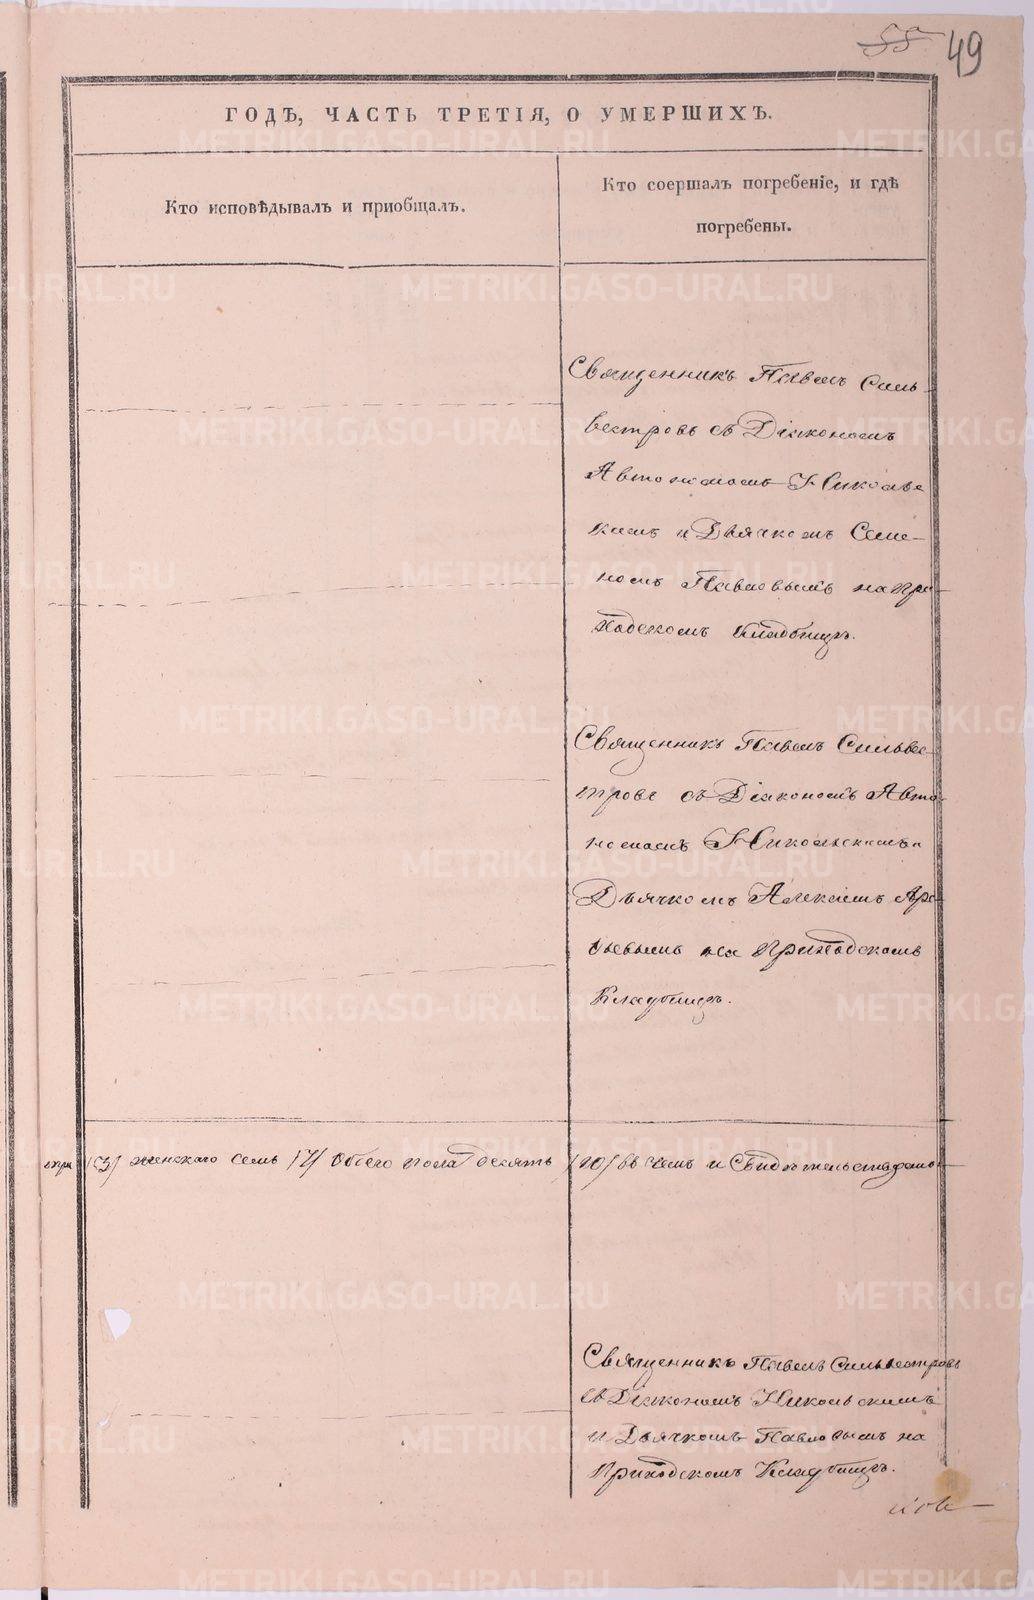 55 49
ГОДЪ, ЧАСТЬ ТРЕТІЯ, О УМЕРШИХЪ.
Кто исповѣдывалъ и пріобщалъ.
Кто соершалъ погребеніе, и гдѣ
погребены.
Священникъ Павелъ Силь-
вестровъ съ Діакономъ
Автономомъ Николь
кимъ и Дьячкомъ Семе-
номъ Павловымъ на При-
ходскомъ Кладбищѣ.
Священникъ Павелъ Сильве-
стровъ съ Діакономъ Авто-
номомъ Никольскимъ и
Дьячкомъ Алексѣемъ
на Приходскомъ
Кладбищѣ.
три (3) женскаго семь (7) обоего пола десять (10) въ чемъ и Свидѣтельствуемъ
Священникъ Павелъ Сильвестровъ
съ Діакономъ Никольскимъ
и Дьячкомъ Павловымъ на
Приходскомъ Кладбищѣ.
METRIKI.GASO-URAL.RU